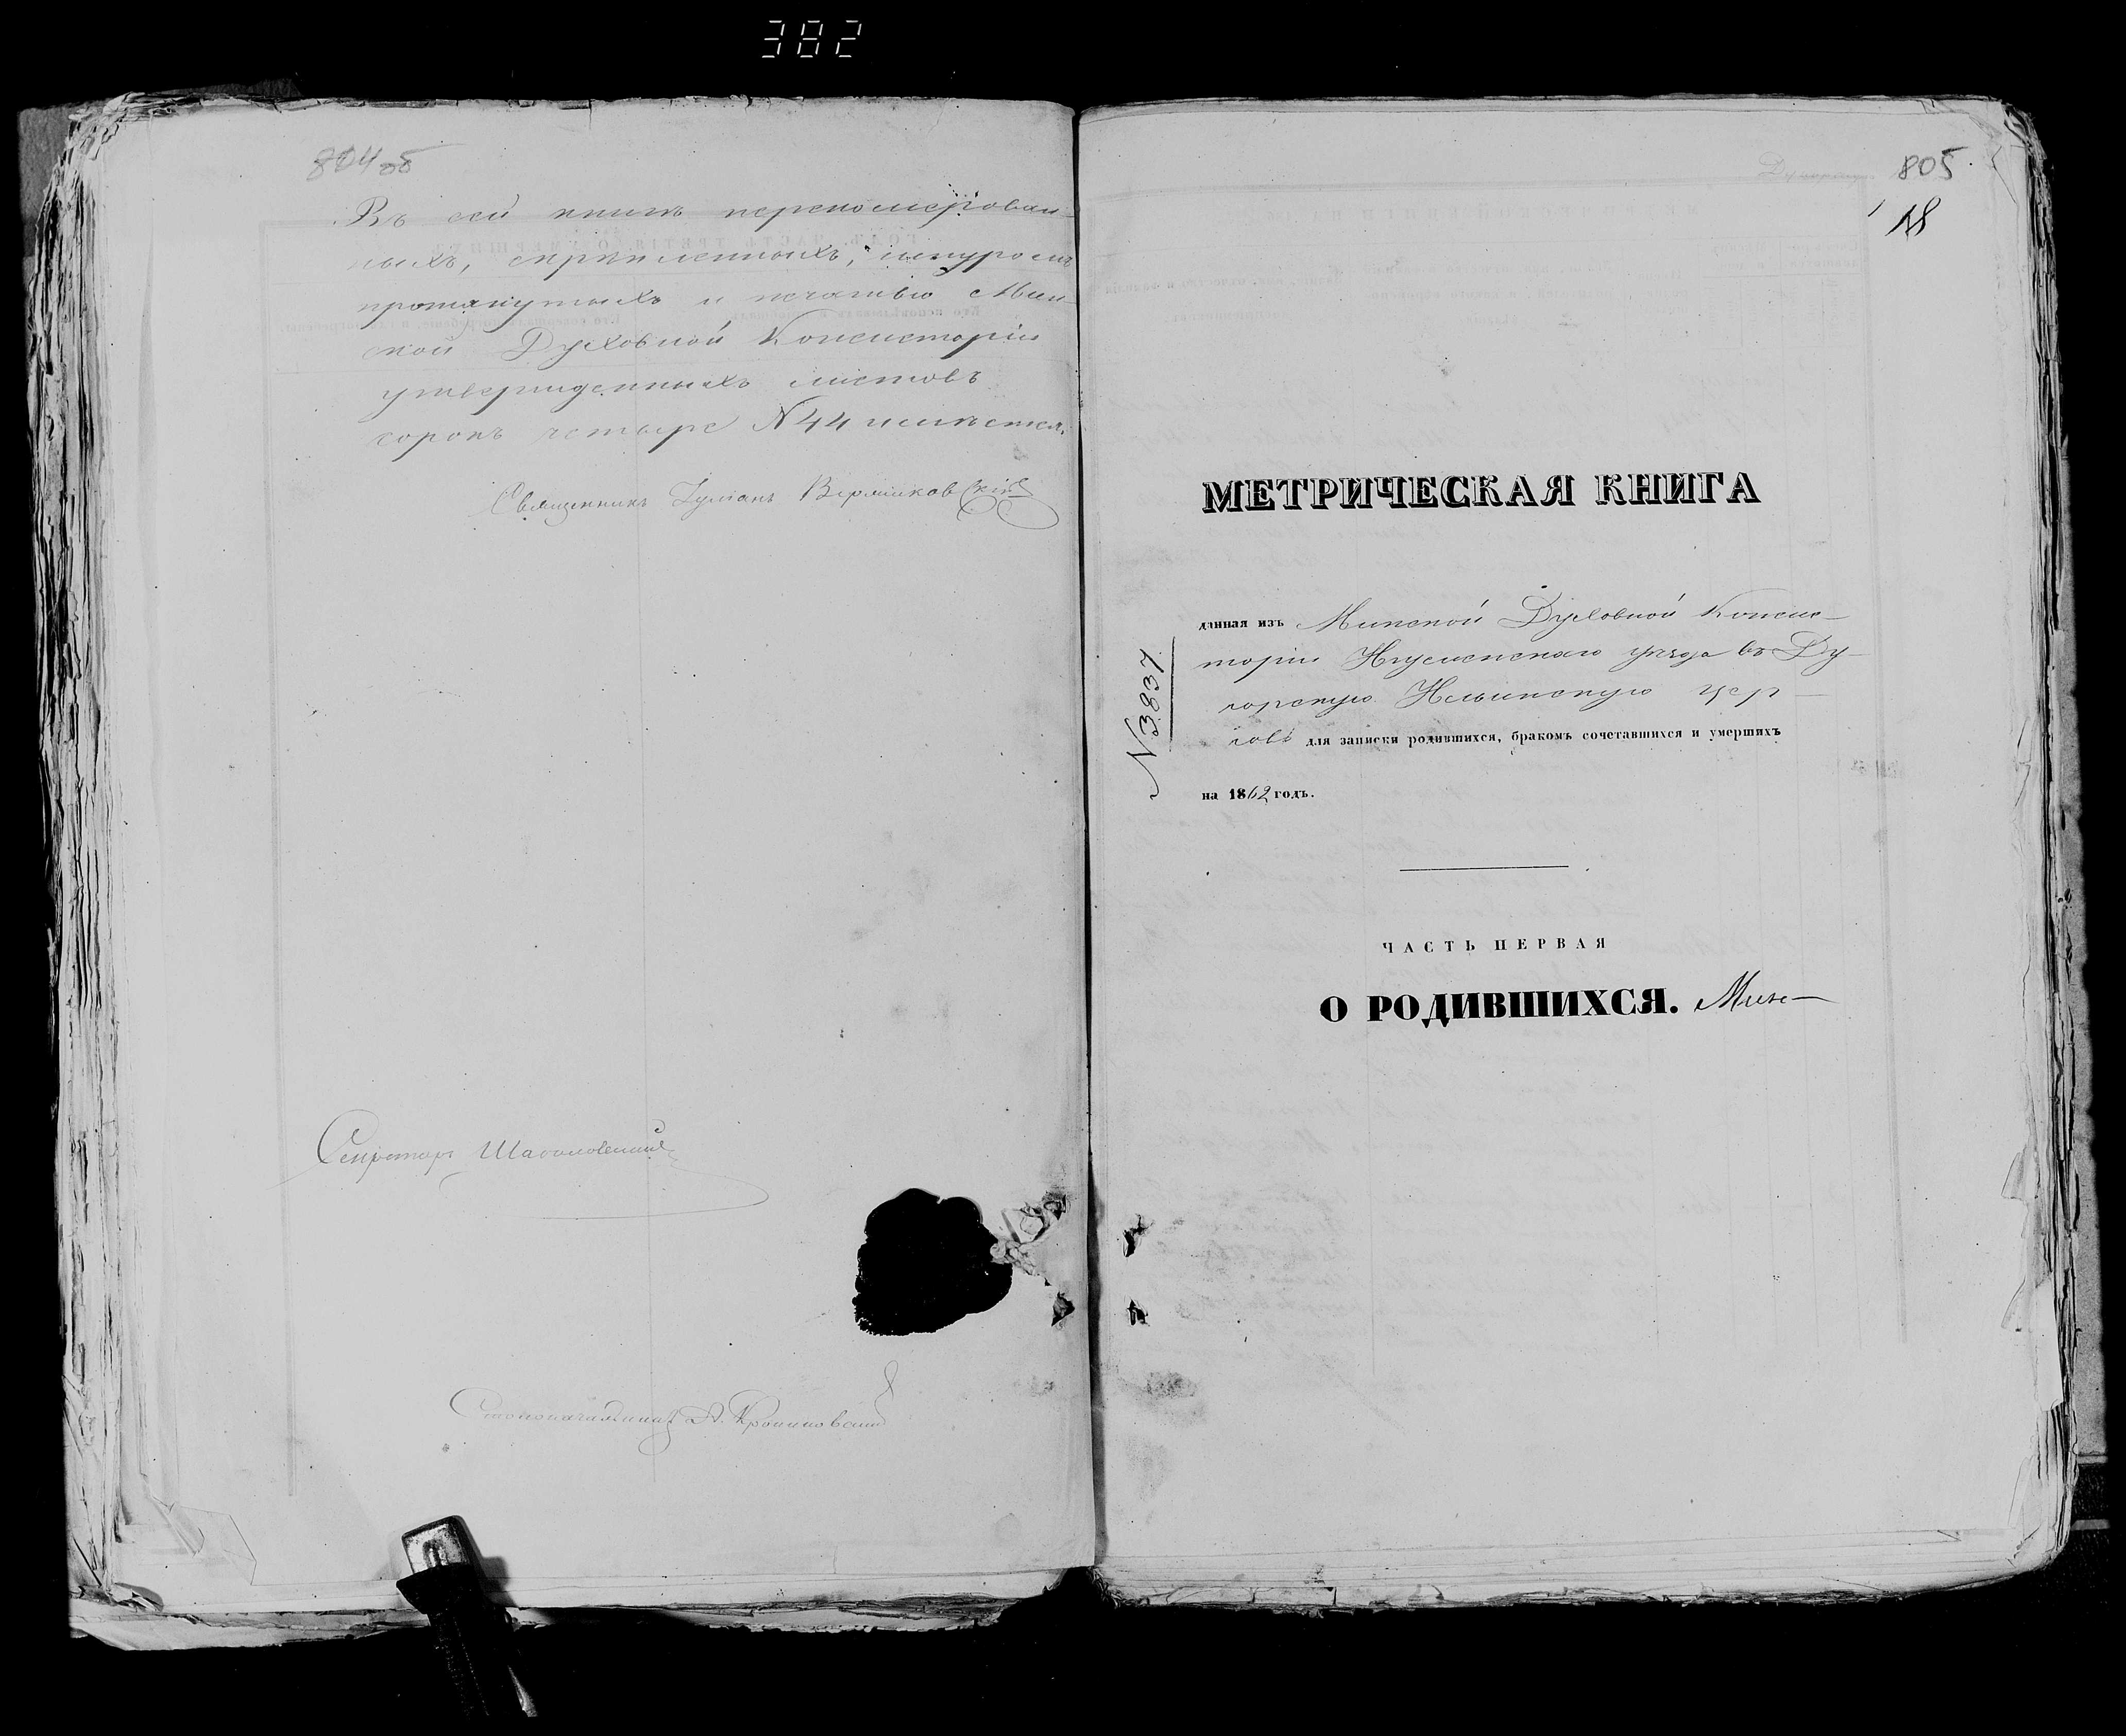 382
804 об
Въ сей книгѣ перенумерован-
ныхъ, скрѣпленныхъ, шнуромъ
протянутыхъ и печатью Мин-
ской Духовной Консисторіи
утвержденныхъ листовъ
сорокъ четыре N 44 имѣется.
Священникъ
Секретарь
Столоначальникъ
805
18
МЕТРИЧЕСКАЯ КНИГА
данная изъ Минской Духовной Консис-
торіи Игуменскаго уѣзда въ Ду-
корскую Ильинскую цер-
ковь для записки родившихся, бракомъ сочетавшихся и умершихъ
на 1862 годъ.
N 3837
ЧАСТЬ ПЕРВАЯ
О РОДИВШИХСЯ. Мин-